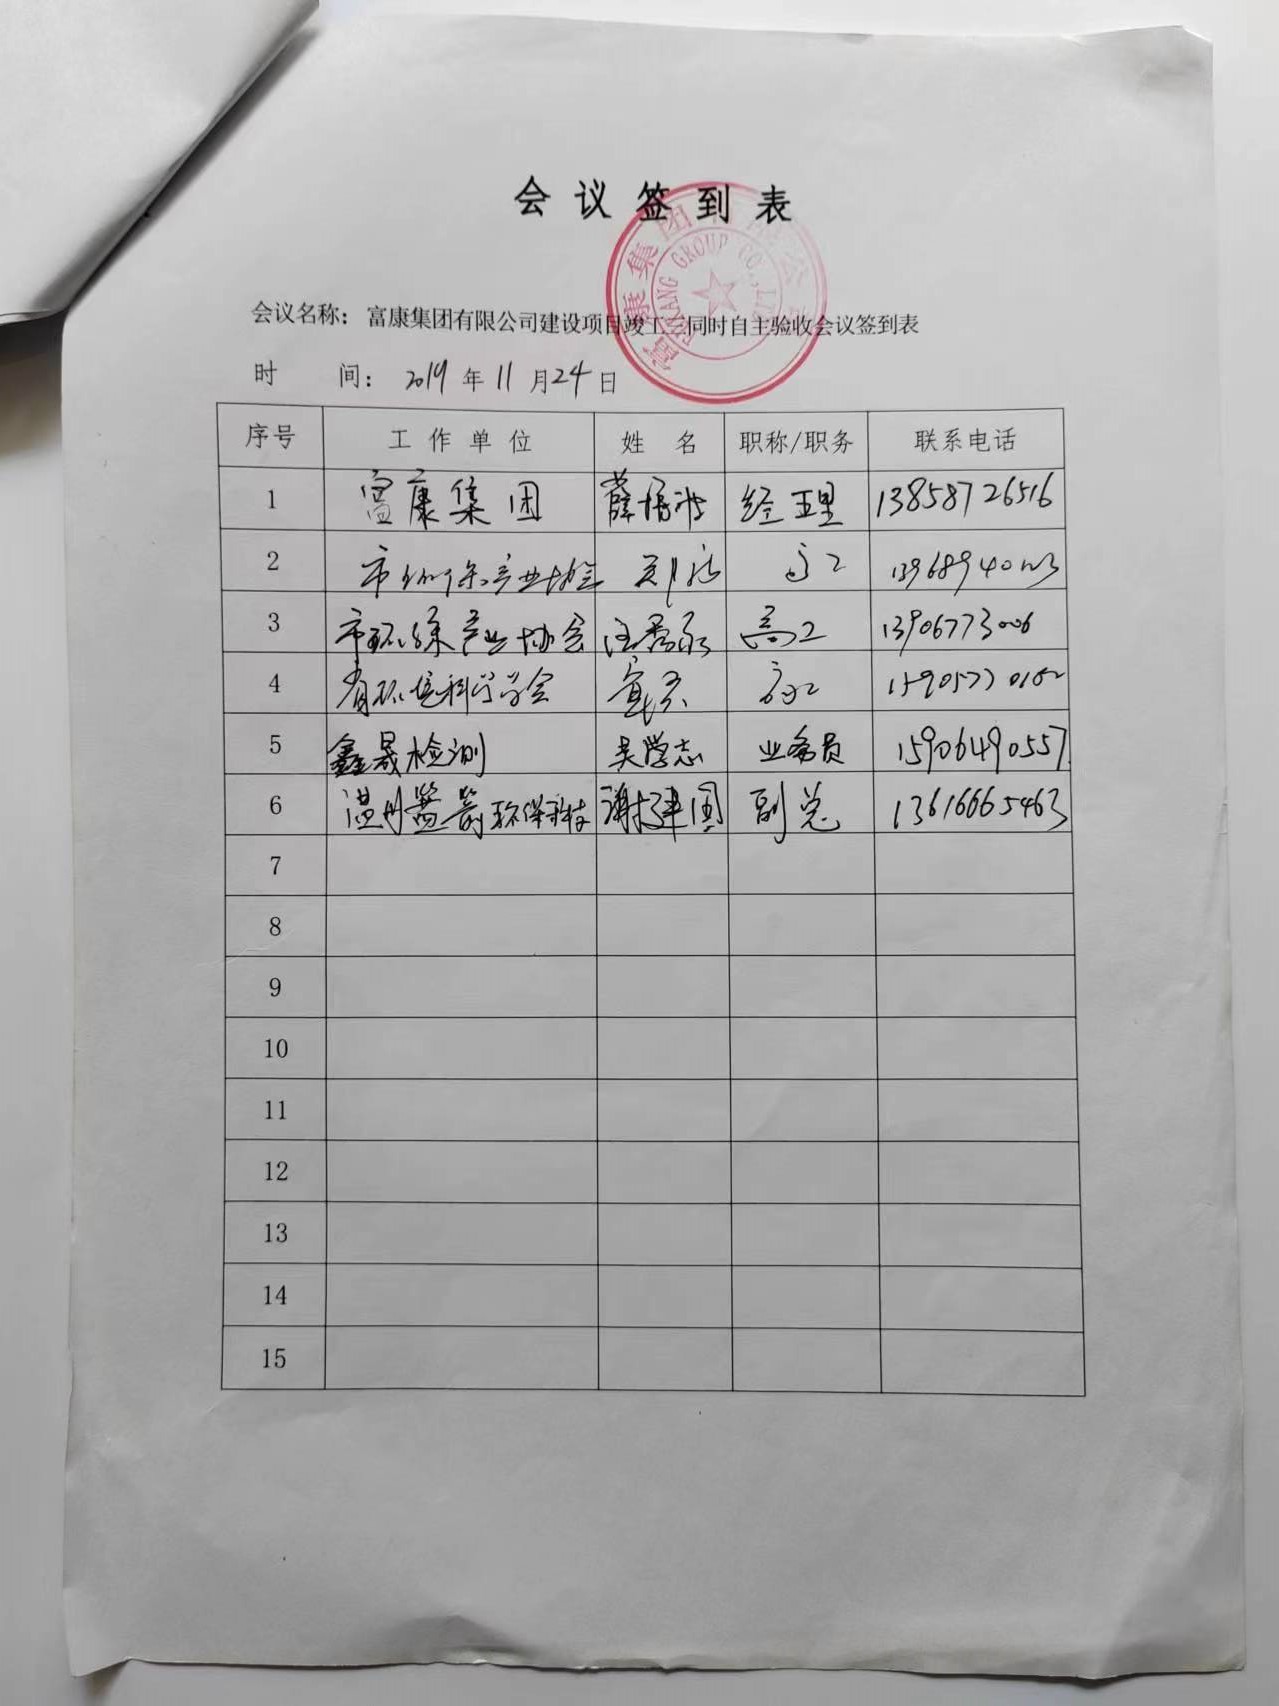 会议签到表
富康集团有限公司
FUKANG GROUP CO.,LTD
会议名称：富康集团有限公司建设项目竣工三同时自主验收会议签到表
时 间：2019年11月24日
序号 工作单位 姓名 职称/职务 联系电话
1 富康集团 薛 经理 13858726516
2 市环保产业协会 高工
3 市环保产业协会 高工 13906773006
4 省环境科学学会 高工
5 鑫晟检测 吴学志 业务员 15906490557
6 温州 环保科技 谢建国 副总 13616665463
7
8
9
10
11
12
13
14
15